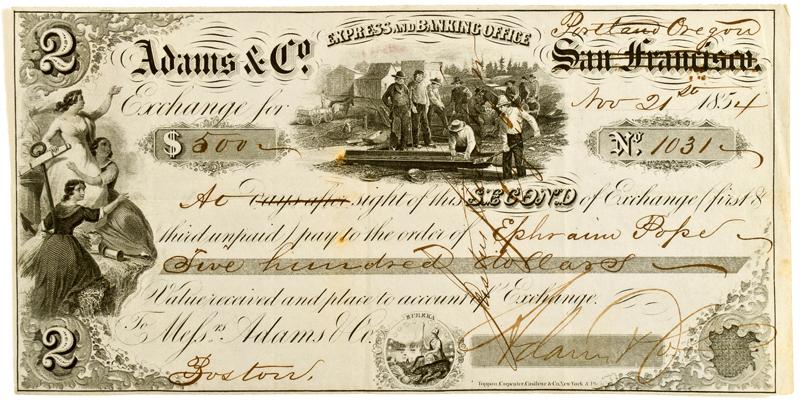 2
EXPRESS AND BANKING OFFICE
Portland Oregon
Adams & Co.
San Francisco.
Exchange for
Nov 21st 1854
$ 500
No. 1031
At Days after sight of this SECOND of Exchange (first &
third unpaid) pay to the order of Ephraim Pope
Five hundred dollars
Value received and place to account of Exchange.
To Messrs. Adams & Co.
EUREKA
Adams & Co
2
Boston.
Toppan, Carpenter, Casilear & Co. New York &